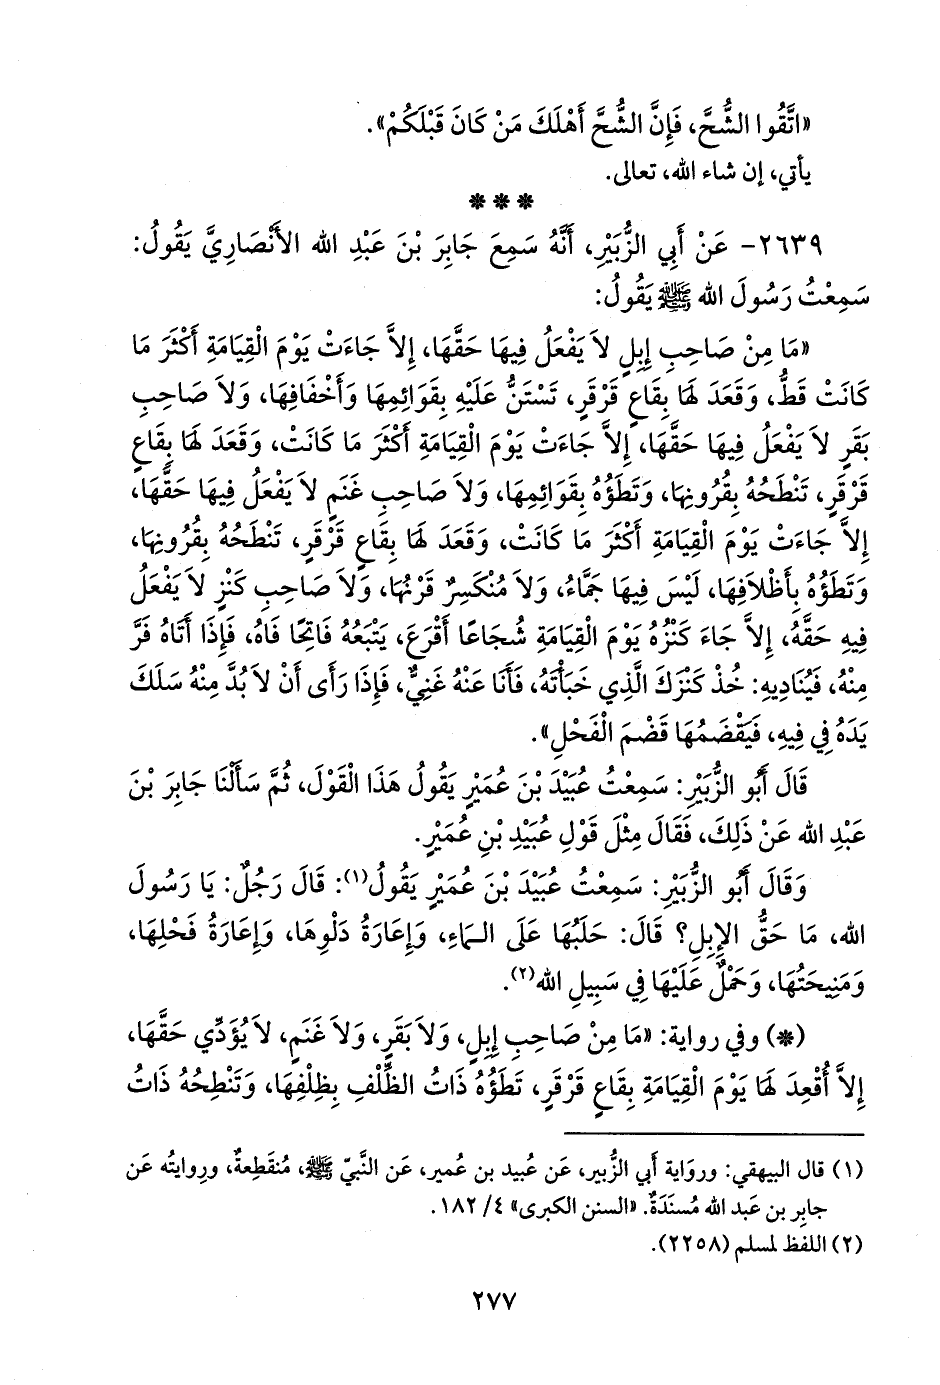 «اتَّقُوا الشُّحَّ، فَإِنَّ الشُّحَّ أَهْلَكَ مَنْ كَانَ قَبْلَكُمْ».
يأتي، إن شاء الله، تعالى.
* * *
٢٦٣٩- عَنْ أَبِي الزُّبَيْرِ، أَنَّهُ سَمِعَ جَابِرَ بْنَ عَبْدِ الله الأَنْصَارِيَّ يَقُولُ:
سَمِعْتُ رَسُولَ الله ﷺ يَقُولُ:
«مَا مِنْ صَاحِبِ إِبِلٍ لاَ يَفْعَلُ فِيهَا حَقَّهَا، إِلاَّ جَاءَتْ يَوْمَ الْقِيَامَةِ أَكْثَرَ مَا
كَانَتْ قَطُّ، وَقَعَدَ لَهَا بِقَاعٍ قَرْقَرٍ، تَسْتَنُّ عَلَيْهِ بِقَوَائِمِهَا وَأَخْفَافِهَا، وَلاَ صَاحِبِ
بَقَرٍ لاَ يَفْعَلُ فِيهَا حَقَّهَا، إِلاَّ جَاءَتْ يَوْمَ الْقِيَامَةِ أَكْثَرَ مَا كَانَتْ، وَقَعَدَ لَهَا بِقَاعٍ
قَرْقَرٍ، تَنْطَحُهُ بِقُرُونِهَا، وَتَطَؤُهُ بِقَوَائِمِهَا، وَلاَ صَاحِبِ غَنَمٍ لاَ يَفْعَلُ فِيهَا حَقَّهَا،
إِلاَّ جَاءَتْ يَوْمَ الْقِيَامَةِ أَكْثَرَ مَا كَانَتْ، وَقَعَدَ لَهَا بِقَاعٍ قَرْقَرٍ، تَنْطَحُهُ بِقُرُونِهَا،
وَتَطَؤُهُ بِأَظْلاَفِهَا، لَيْسَ فِيهَا جَمَّاءُ، وَلاَ مُنْكَسِرٌ قَرْنُهَا، وَلاَ صَاحِبِ كَنْزٍ لاَ يَفْعَلُ
فِيهِ حَقَّهُ، إِلاَّ جَاءَ كَنْزُهُ يَوْمَ الْقِيَامَةِ شُجَاعًا أَقْرَعَ، يَتْبَعُهُ فَاتِحًا فَاهُ، فَإِذَا أَتَاهُ فَرَّ
مِنْهُ، فَيُنَادِيهِ: خُذْ كَنْزَكَ الَّذِي خَبَأْتَهُ، فَأَنَا عَنْهُ غَنِيٌّ، فَإِذَا رَأَى أَنْ لاَ بُدَّ مِنْهُ سَلَكَ
يَدَهُ فِي فِيهِ، فَيَقْضَمُهَا قَضْمَ الْفَحْلِ».
قَالَ أَبُو الزُّبَيْرِ: سَمِعْتُ عُبَيْدَ بْنَ عُمَيْرٍ يَقُولُ هَذَا الْقَوْلَ، ثُمَّ سَأَلْنَا جَابِرَ بْنَ
عَبْدِ الله عَنْ ذَلِكَ، فَقَالَ مِثْلَ قَوْلِ عُبَيْدِ بْنِ عُمَيْرٍ.
وَقَالَ أَبُو الزُّبَيْرِ: سَمِعْتُ عُبَيْدَ بْنَ عُمَيْرٍ يَقُولُ(١): قَالَ رَجُلٌ: يَا رَسُولَ
الله، مَا حَقُّ الإِبِلِ؟ قَالَ: حَلَبُهَا عَلَى الـمَاءِ، وَإِعَارَةُ دَلْوِهَا، وَإِعَارَةُ فَحْلِهَا،
وَمَنِيحَتُهَا، وَحَمْلٌ عَلَيْهَا فِي سَبِيلِ الله(٢).
(*) وفي رواية: «مَا مِنْ صَاحِبِ إِبِلٍ، وَلاَ بَقَرٍ، وَلاَ غَنَمٍ، لاَ يُؤَدِّي حَقَّهَا،
إِلاَّ أُقْعِدَ لَهَا يَوْمَ الْقِيَامَةِ بِقَاعٍ قَرْقَرٍ، تَطَؤُهُ ذَاتُ الظِّلْفِ بِظِلْفِهَا، وَتَنْطِحُهُ ذَاتُ
(١) قال البيهقي: وروَاية أَبي الزُّبير، عَن عُبيد بن عُمير، عَن النَّبيّ ﷺ، مُنقَطِعةٌ، وروايتُه عَن
جابِر بن عَبد الله مُسنَدَةٌ. «السنن الكبرى» ٤/ ١٨٢.
(٢) اللفظ لمسلم (٢٢٥٨).
٢٧٧